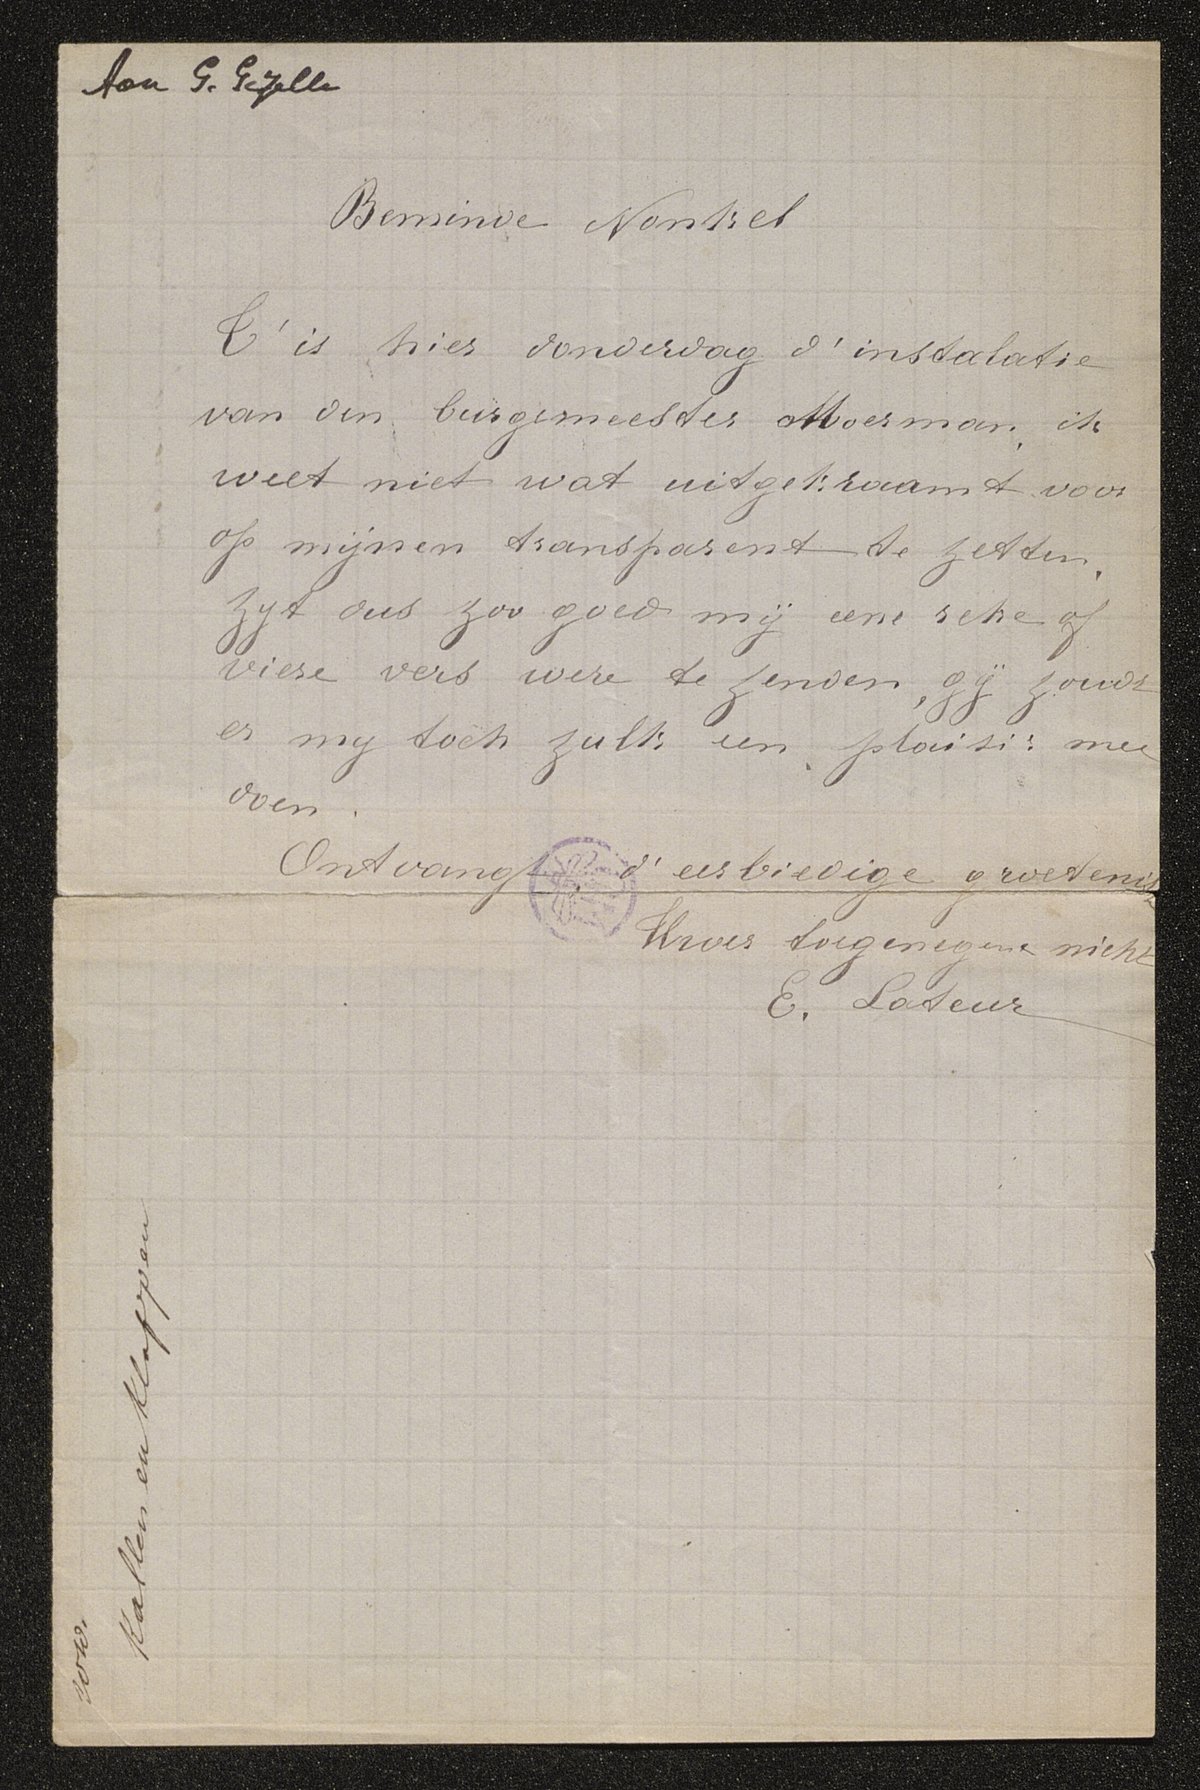 Aan G. Gezelle
Beminde Nonkel
T' is hier donderdag d' instalatie
van den burgemeester Moerman, ik
weet niet wat uitgekraamt voor
op mijnen transparent te zetten.
zyt dus zoo goed mij eene reke of
viere vers were te zenden, gij zoudt
er my toch zulk een plaisir mee
doen.
Ontvangt d' eerbiedige groetenisse
Uwer toegenegene nicht
E. Lateur
Kallen en Klappen